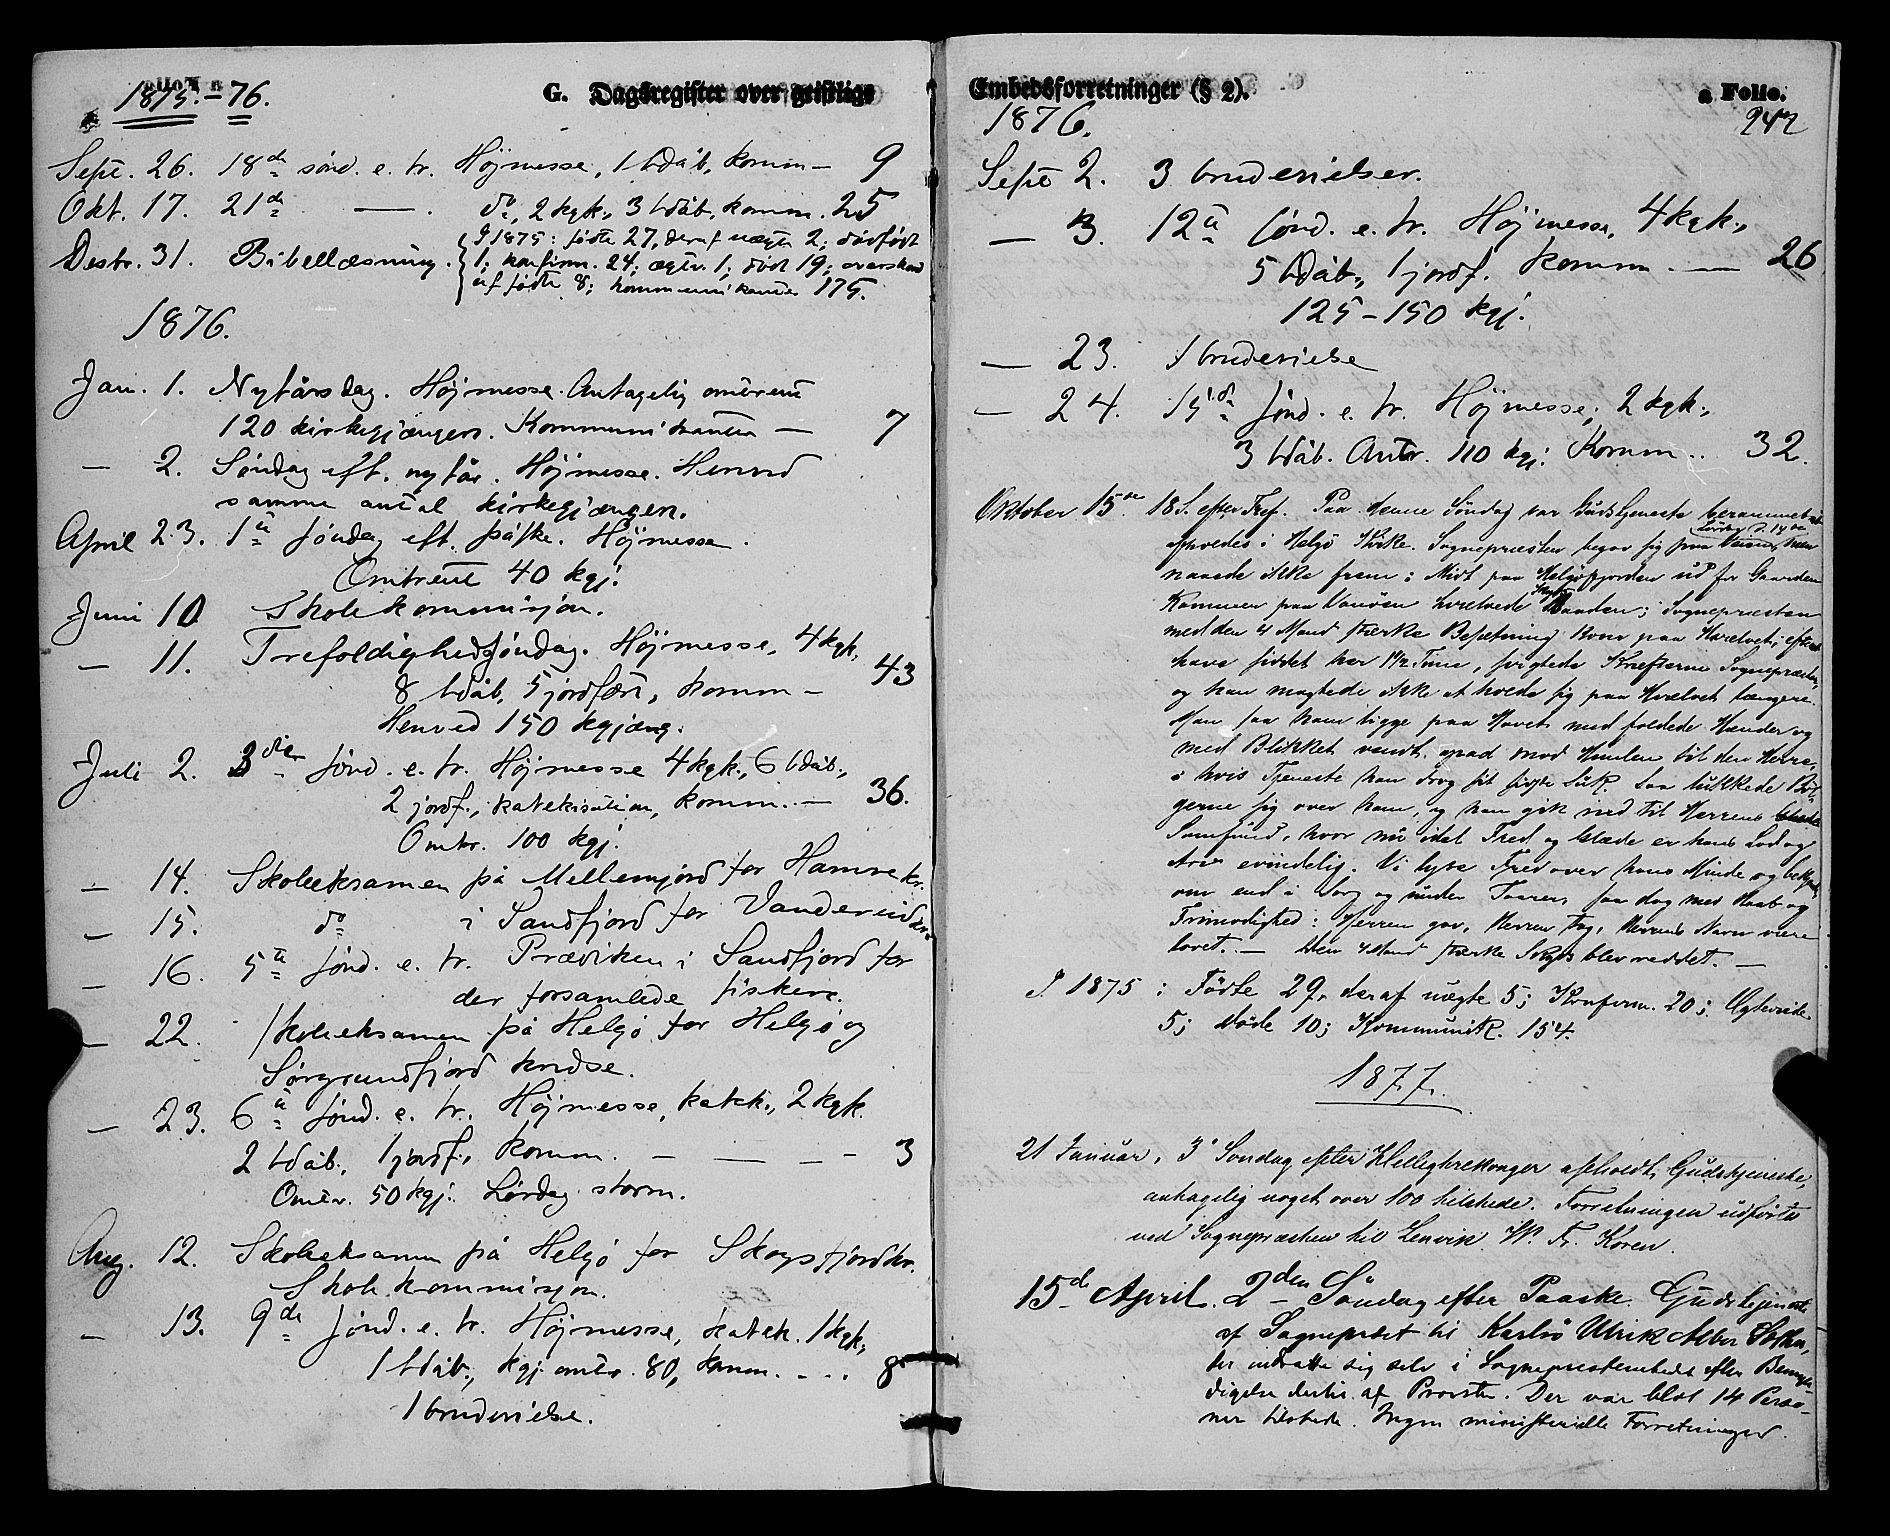 1875.-76.
G. Dagsregister over geistlige
Sept. 26. 18de sønd. e. tr. Højmesse, 1 bdåb, komm - 9
Okt. 17. 21de — . do, 2 kgk., 3 bdåb, komm. 25
Desbr. 31. Bibellæsning.
I 1875: fødte 27, deraf uægte 2; dødfødt
1; konfirm. 24; ægtev. 1; død 19; overskud
af fødte 8; kommunikanter 175.
1876.
Jan. 1. Nytårsdag. Højmesse. Antagelig omtrent
120 kirkegjængere. Kommunikanter — 7
— 2. Søndag eft. nytår. Højmesse. Henved
samme antal kirkegjængere.
April 23. 1te søndag eft. påske. Højmesse.
Omtrent 40 kgj.
Juni 10 Skolekommisjon.
— 11. Trefoldighedssøndag. Højmesse, 4 kgk,
8 bdåb, 5 jordfæst, komm - 43
Henved 150 kgjæng.
Juli 2. 3die sønd. e. tr. Højmesse 4 kgk., 6 bdåb.,
2 jordf., katekisation, komm. — 36.
Omtr. 100 kgj.
— 14. Skoleeksamen på Mellemjord for Hamre kr.
— 15. do i Sandfjord for Vandereidkr.
— 16. 5te sønd. e. tr. Prædiken i Sandfjord for
der forsamlede fiskere.
— 22. Skoleeksamen på Helgø for Helgø og
Sørgrundfjord kredse.
— 23. 6te sønd. e. tr. Højmesse, katek., 2 kgk.
2 bdåb., 1 jordf., komm. — — — - 3
Omtr. 50 kgj. Lørdag storm.
Aug. 12. Skoleeksamen på Helgø for Skogsfjordkr.
Skolekommisjon.
— 13. 9de sønd. e. tr. Højmesse, katek. 1 kgk.,
1 bdåb., kgj. omtr. 80, komm. . . . 8
1 brudevielse.
Embedsforretninger (§ 2).
a Folio.
1876.
242
Sept 2. 3 brudevielser.
— 3. 12te sønd. e. tr. Højmesse, 4 kgk.,
5 bdåb., 1 jordf. komm. — 26
125-150 kgj.
— 23. 1 brudevielse
— 24. 15de sønd. e. tr. Højmesse; 2 kgk.,
3 bdåb. Antr. 110 kgj. Komm.. 32.
Oktober 15de 18 S. efter Tref. Paa denne Söndag var Gudstjeneste berammet
afholdes i Helgö Kirke. Sognepræsten begav sig paa Veien, Lördag d. 14de men
naaede ikke frem: Midt paa Helgöfjorden ud for Gaarden
Kammen paa Vanöen hvælvede Skyds Baaden; Sognepræsten
med den 4 Mand stærke Besætning kom paa Hvælvet; efter at
have siddet her 1 1/2 Time, svigtede Kræfterne Sognepræsten,
og han magtede ikke at holde sig paa Hvælvet længere.
Man saa ham ligge paa Havet med foldede Hænder og
med Blikket vendt opad mod Himlen til den Herre,
i hvis Tjeneste han drog sit sidste Suk. Saa lukkede Böl-
gerne sig over ham, og han gik ind til Herrens
Samfund, hvor nu idel Fred og Glæde er hans Lod og
Arv evindelig. Vi lyse Fred over hans Minde og
om end i Sorg og under Taarer, saa dog med Haab og
Frimodighed: Herren gav, Herren tog, Herrens Navn være
lovet. — Den 4 Mand stærke Skyds blev reddet. —
I 1875: Födte 29, deraf uægte 5; Konfirm. 20; Ægteviede
5; Döde 10; Kommunik. 154.
1877.
21 Januar, 3' Söndag efter Helligtrekonger afholdt Gudstjeneste,
antagelig noget over 100 tilstede. Forretningen udfört
ved Sognepræsten til Lenvik. W. Fr. Koren.
15de April. 2den Söndag efter Paaske. Gudstjeneste
af Sognepræst til Karlsö Ulrik
der indsatte sig selv i Sognepresteembedet efter Bemyn-
digelse dertil af Provsten. Der var blot 14 Perso-
ner tilstede. Ingen ministerielle Forretninger.